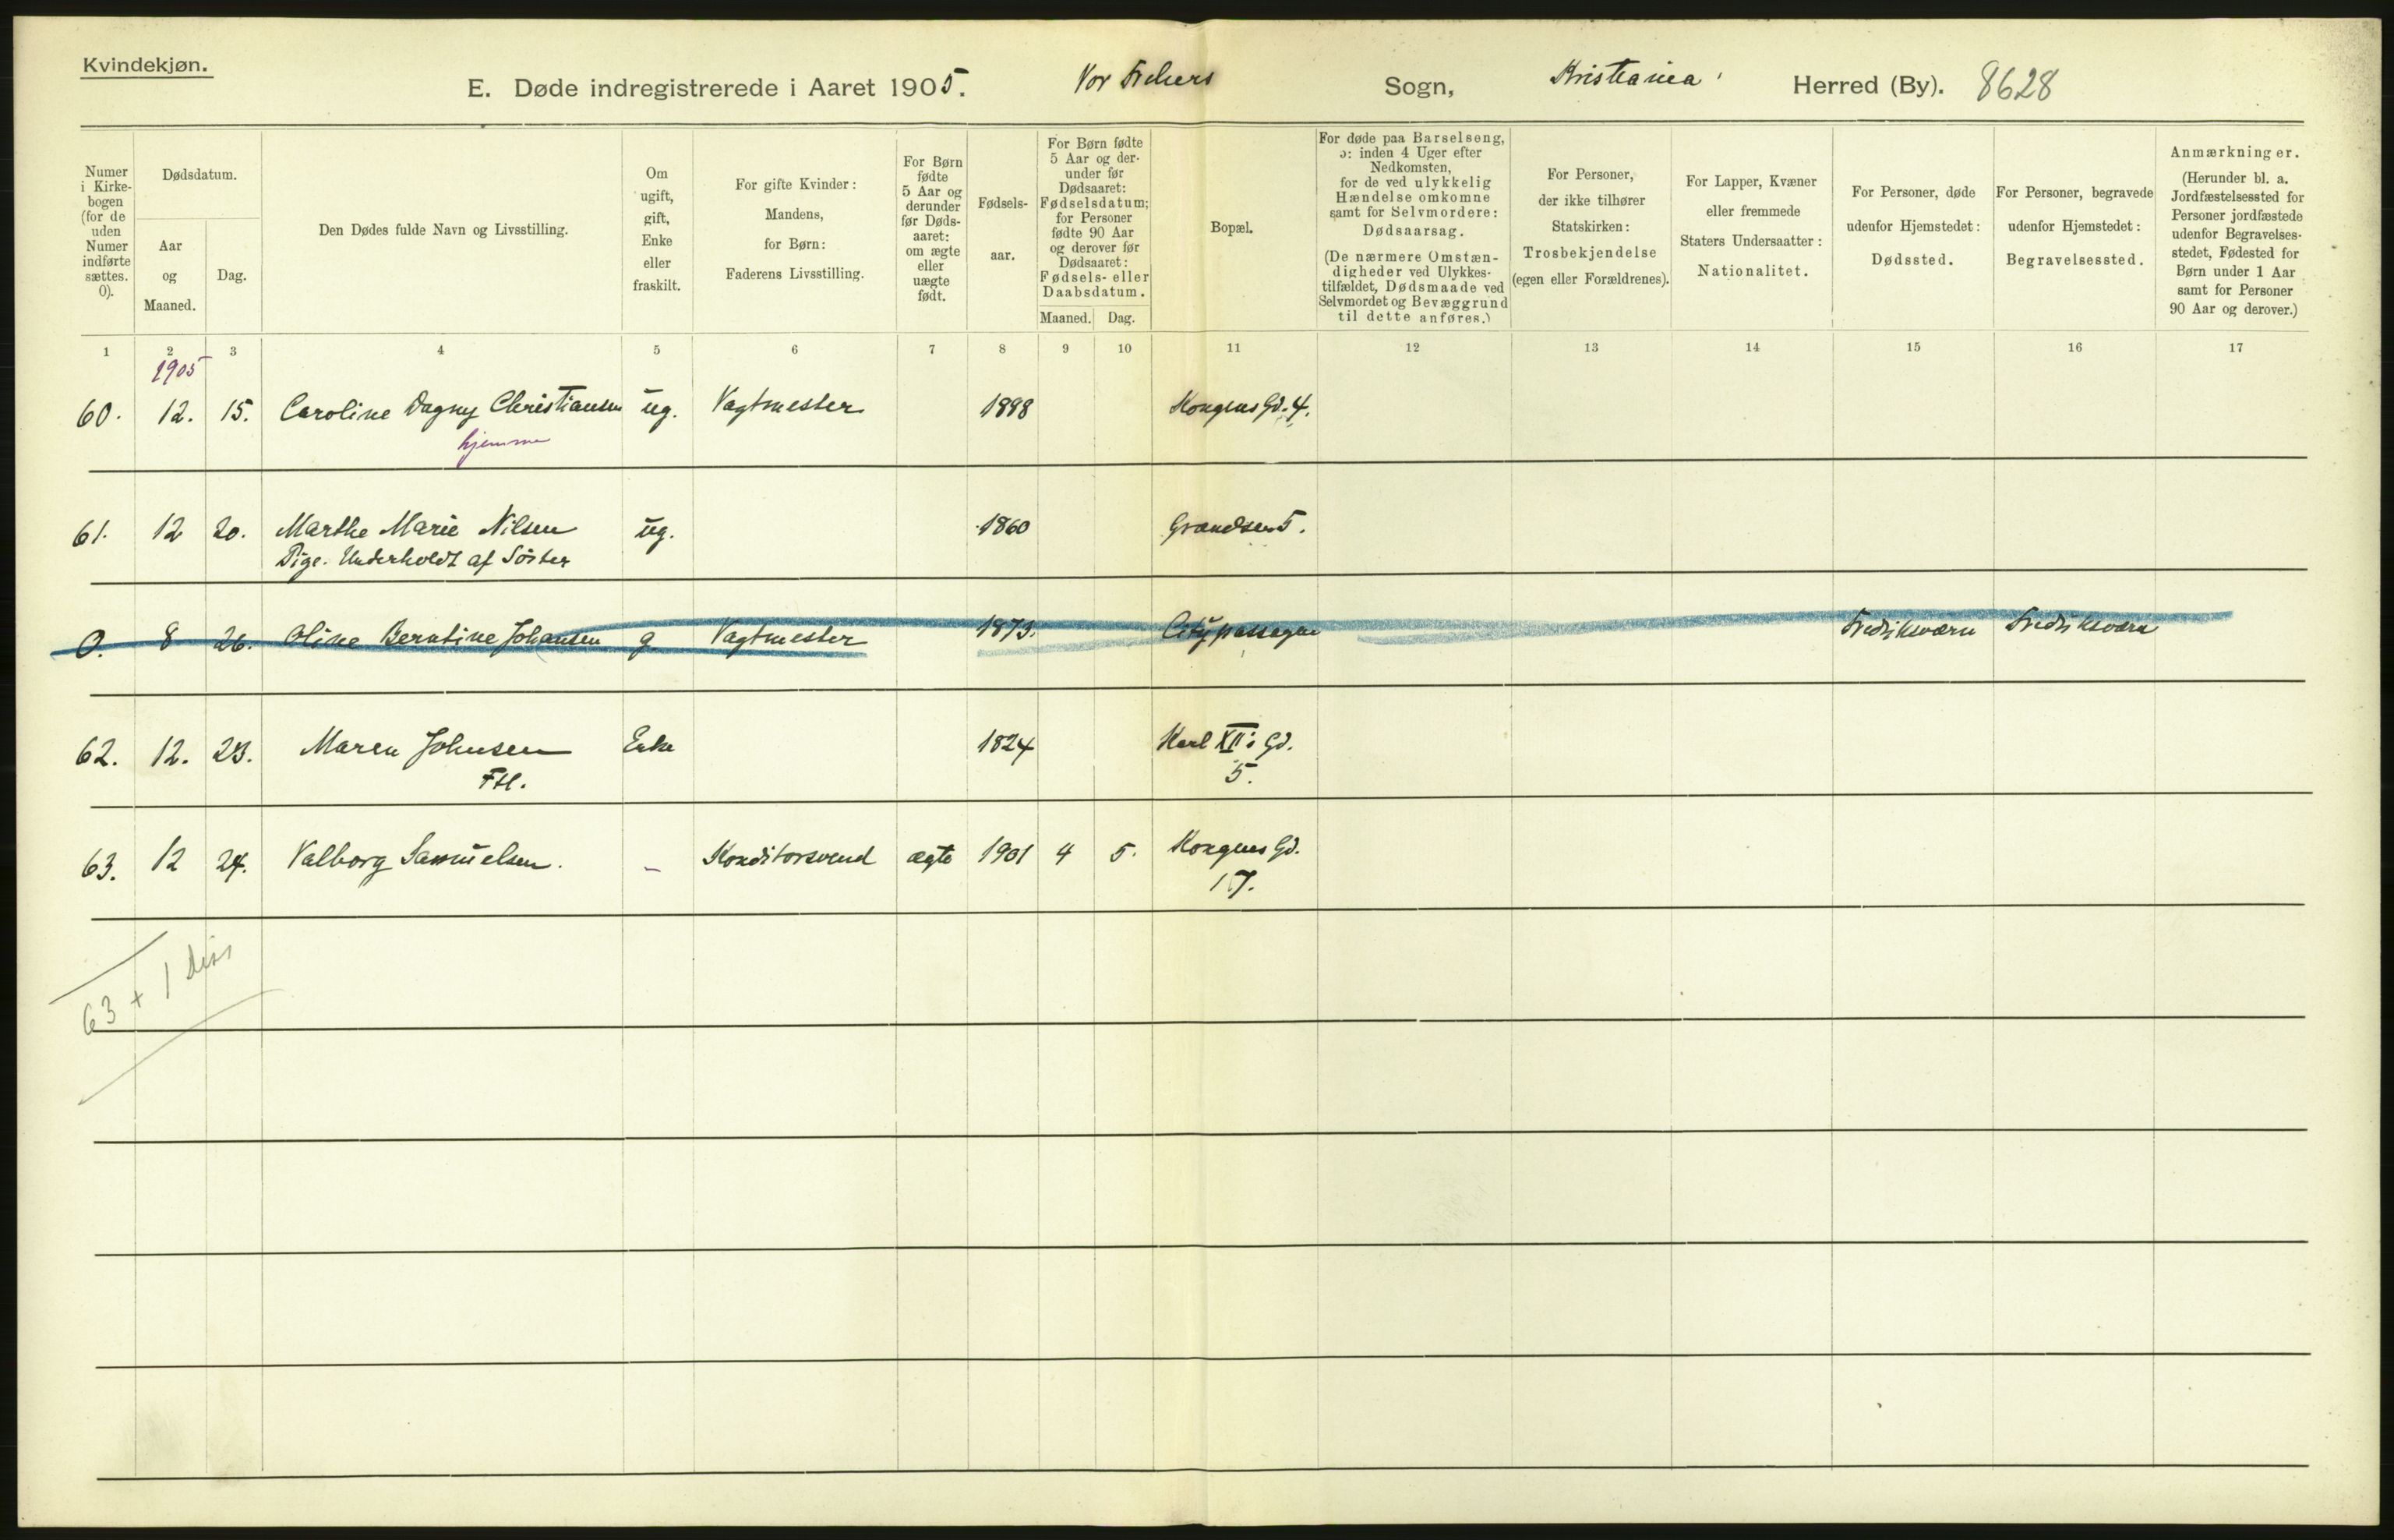 Kvindekjøn.
E. Døde indregistrerede i Aaret 1905. Vor Frelsers Sogn, Kristiania Herred (By). 8628
Numer i Kirkebogen (for de uden Numer indførte sættes. 0).
Dødsdatum.
Aar og Maaned.
Dag.
Den Dødes fulde Navn og Livsstilling.
Om ugift, gift, Enke eller fraskilt.
For gifte Kvinder: Mandens, for Børn: Faderens Livsstilling.
For Børn fødte 5 Aar og derunder før Dødsaaret: om ægte eller uægte født.
Fødselsaar.
For Børn fødte 5 Aar og derunder før Dødsaaret: Fødselsdatum; for Personer fødte 90 Aar og derover før Dødsaaret: Fødsels- eller Daabsdatum.
Maaned. Dag.
Bopæl.
For døde paa Barselseng, ɔ: inden 4 Uger efter Nedkomsten, for de ved ulykkelig Hændelse omkomne samt for Selvmordere: Dødsaarsag.
(De nærmere Omstændigheder ved Ulykkestilfældet, Dødsmaade ved Selvmordet og Bevæggrund til dette anføres.)
For Personer, der ikke tilhører Statskirken: Trosbekjendelse (egen eller Forældrenes).
For Lapper, Kvæner eller fremmede Staters Undersaatter: Nationalitet.
For Personer, døde udenfor Hjemstedet: Dødssted.
For Personer, begravede udenfor Hjemstedet: Begravelsessted.
Anmærkninger.
(Herunder bl. a. Jordfæstelsessted for Personer jordfæstede udenfor Begravelsesstedet, Fødested for Børn under 1 Aar samt for Personer 90 Aar og derover.)
1 2 3 4 5 6 7 8 9 10 11 12 13 14 15 16 17
1905
60. 12. 15. Caroline Dagny Christiansen ug. Vagtmester 1898 Kongens Gd. 4.
hjemme
61. 12 20. Marthe Marie Nilsen ug. 1860 Grændsen 5.
Pige. Underholdt af Söster
0. 8 26. Oline Berntine Johansen g. Vagtmester 1873. Citypassagen Fredriksværn Fredriksværn
62. 12. 23. Maren Johnsen Enke 1824 Karl XII's Gd.
Ftl. 5.
63. 12 24. Valborg Samuelsen. - Konditorsvend ægte 1901 4 5. Kongens Gd.
17.
63 + 1 diss